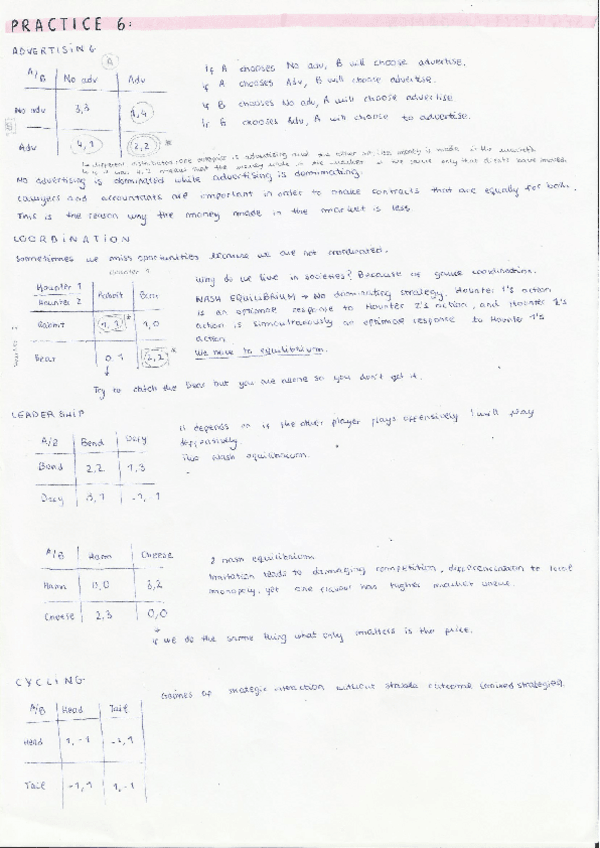 PRACTICE 6:
ADVERTISING
A
A/B No adv Adv
No adv 3,3 1,4
Adv 4,1 2,2 *
B
If A chooses No adv, B will choose advertise.
If A chooses Adv, B will choose advertise.
If B chooses No adv, A will choose advertise
If B chooses Adv, A will choose to advertise.
No advertising is dominated while advertising is dominating.
Lawyers and accountants are important in order to make contracts that are equally for both.
This is the reason why the money made in the market is less.
COORDINATION
Sometimes we miss oportunities because we are not coordinated.
Hounter 1
Hounter 1
Hounter 2 Rabbit Bear
Rabbit 1,1 * 1,0
Bear 0,1 2,2 *
Why do we live in societies? Because of group coordination.
NASH EQUILIBRIUM → No dominating strategy. Hounter 1's action
is an optimal response to Hounter 2's action, and Hounter 2's
action is simultaneously an optimal response to Hounter 1's
action
We have to equilibrium.
Try to catch the bear but you are alone so you don't get it.
LEADERSHIP
A/B Bend Defy
Bend 2,2 1,3
Defy 3,1 -1,-1
It depends on if the other player plays offensively I will play
deffensively.
Two Nash equilibrium.
A/B Ham Cheese
Ham 0,0 3,2
Cheese 2,3 0,0
2 nash equilibrium
Imitation leads to damaging competition, differenciation to local
monopoly, yet one flavour has higher market value.
If we do the same thing what only matters is the price.
CYCLING
A/B Head Tail
Head 1,-1 -1,1
Tail -1,1 1,-1
Games of strategic interaction without stable outcome (mixed strategies).